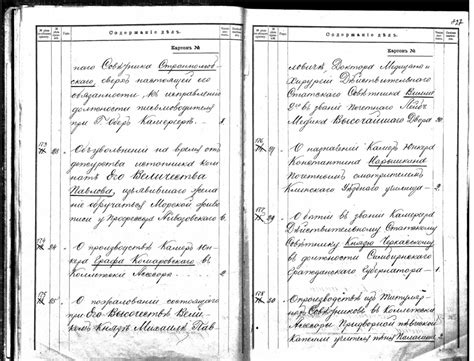 Содержаніе дѣлъ.
Картонъ №
наго Совѣтника
скаго, сверхъ настоящей его
обязанности, къ исправленію
должности письмоводителя
при Оберъ Камергерѣ.
173
Объ увольненіи на время отъ
дежурства истопника ком-
натъ Его Величества
Павлова, изъявившаго жела-
ніе обучаться Морской живо-
писи у Профессора 6.
174 24.
О производствѣ Камеръ Юн-
кера Графа Комаровскаго въ
Коллежскіе Ассесоры. 2.
175 25.
О пожалованіи состоящаго
при Его Высочествѣ Вели-
комъ Князѣ Михаилѣ Пав-
Содержаніе дѣлъ.
Картонъ №
ловичѣ Доктора Медицины и
Хирургіи Дѣйствительнаго
Статскаго Совѣтника
въ званіе почетнаго Лейбъ
Медика Высочайшаго Двора 20
176
О назначеніи Камеръ Юнкера
Константина Нарышкина
Почетнымъ смотрителемъ
Клинскаго Уѣзднаго училища 2.
177 29.
О бытіи въ званіи Камергера
Дѣйствительному Статскому
Совѣтнику Князю Черкасскому
въ должности Симбирскаго
Гражданскаго Губернатора 1
178 30
О производствѣ изъ Титуляр-
ныхъ Совѣтниковъ въ Коллежскіе
Ассесоры Придворной пѣвческой
Капеллы учителя пѣнія 2